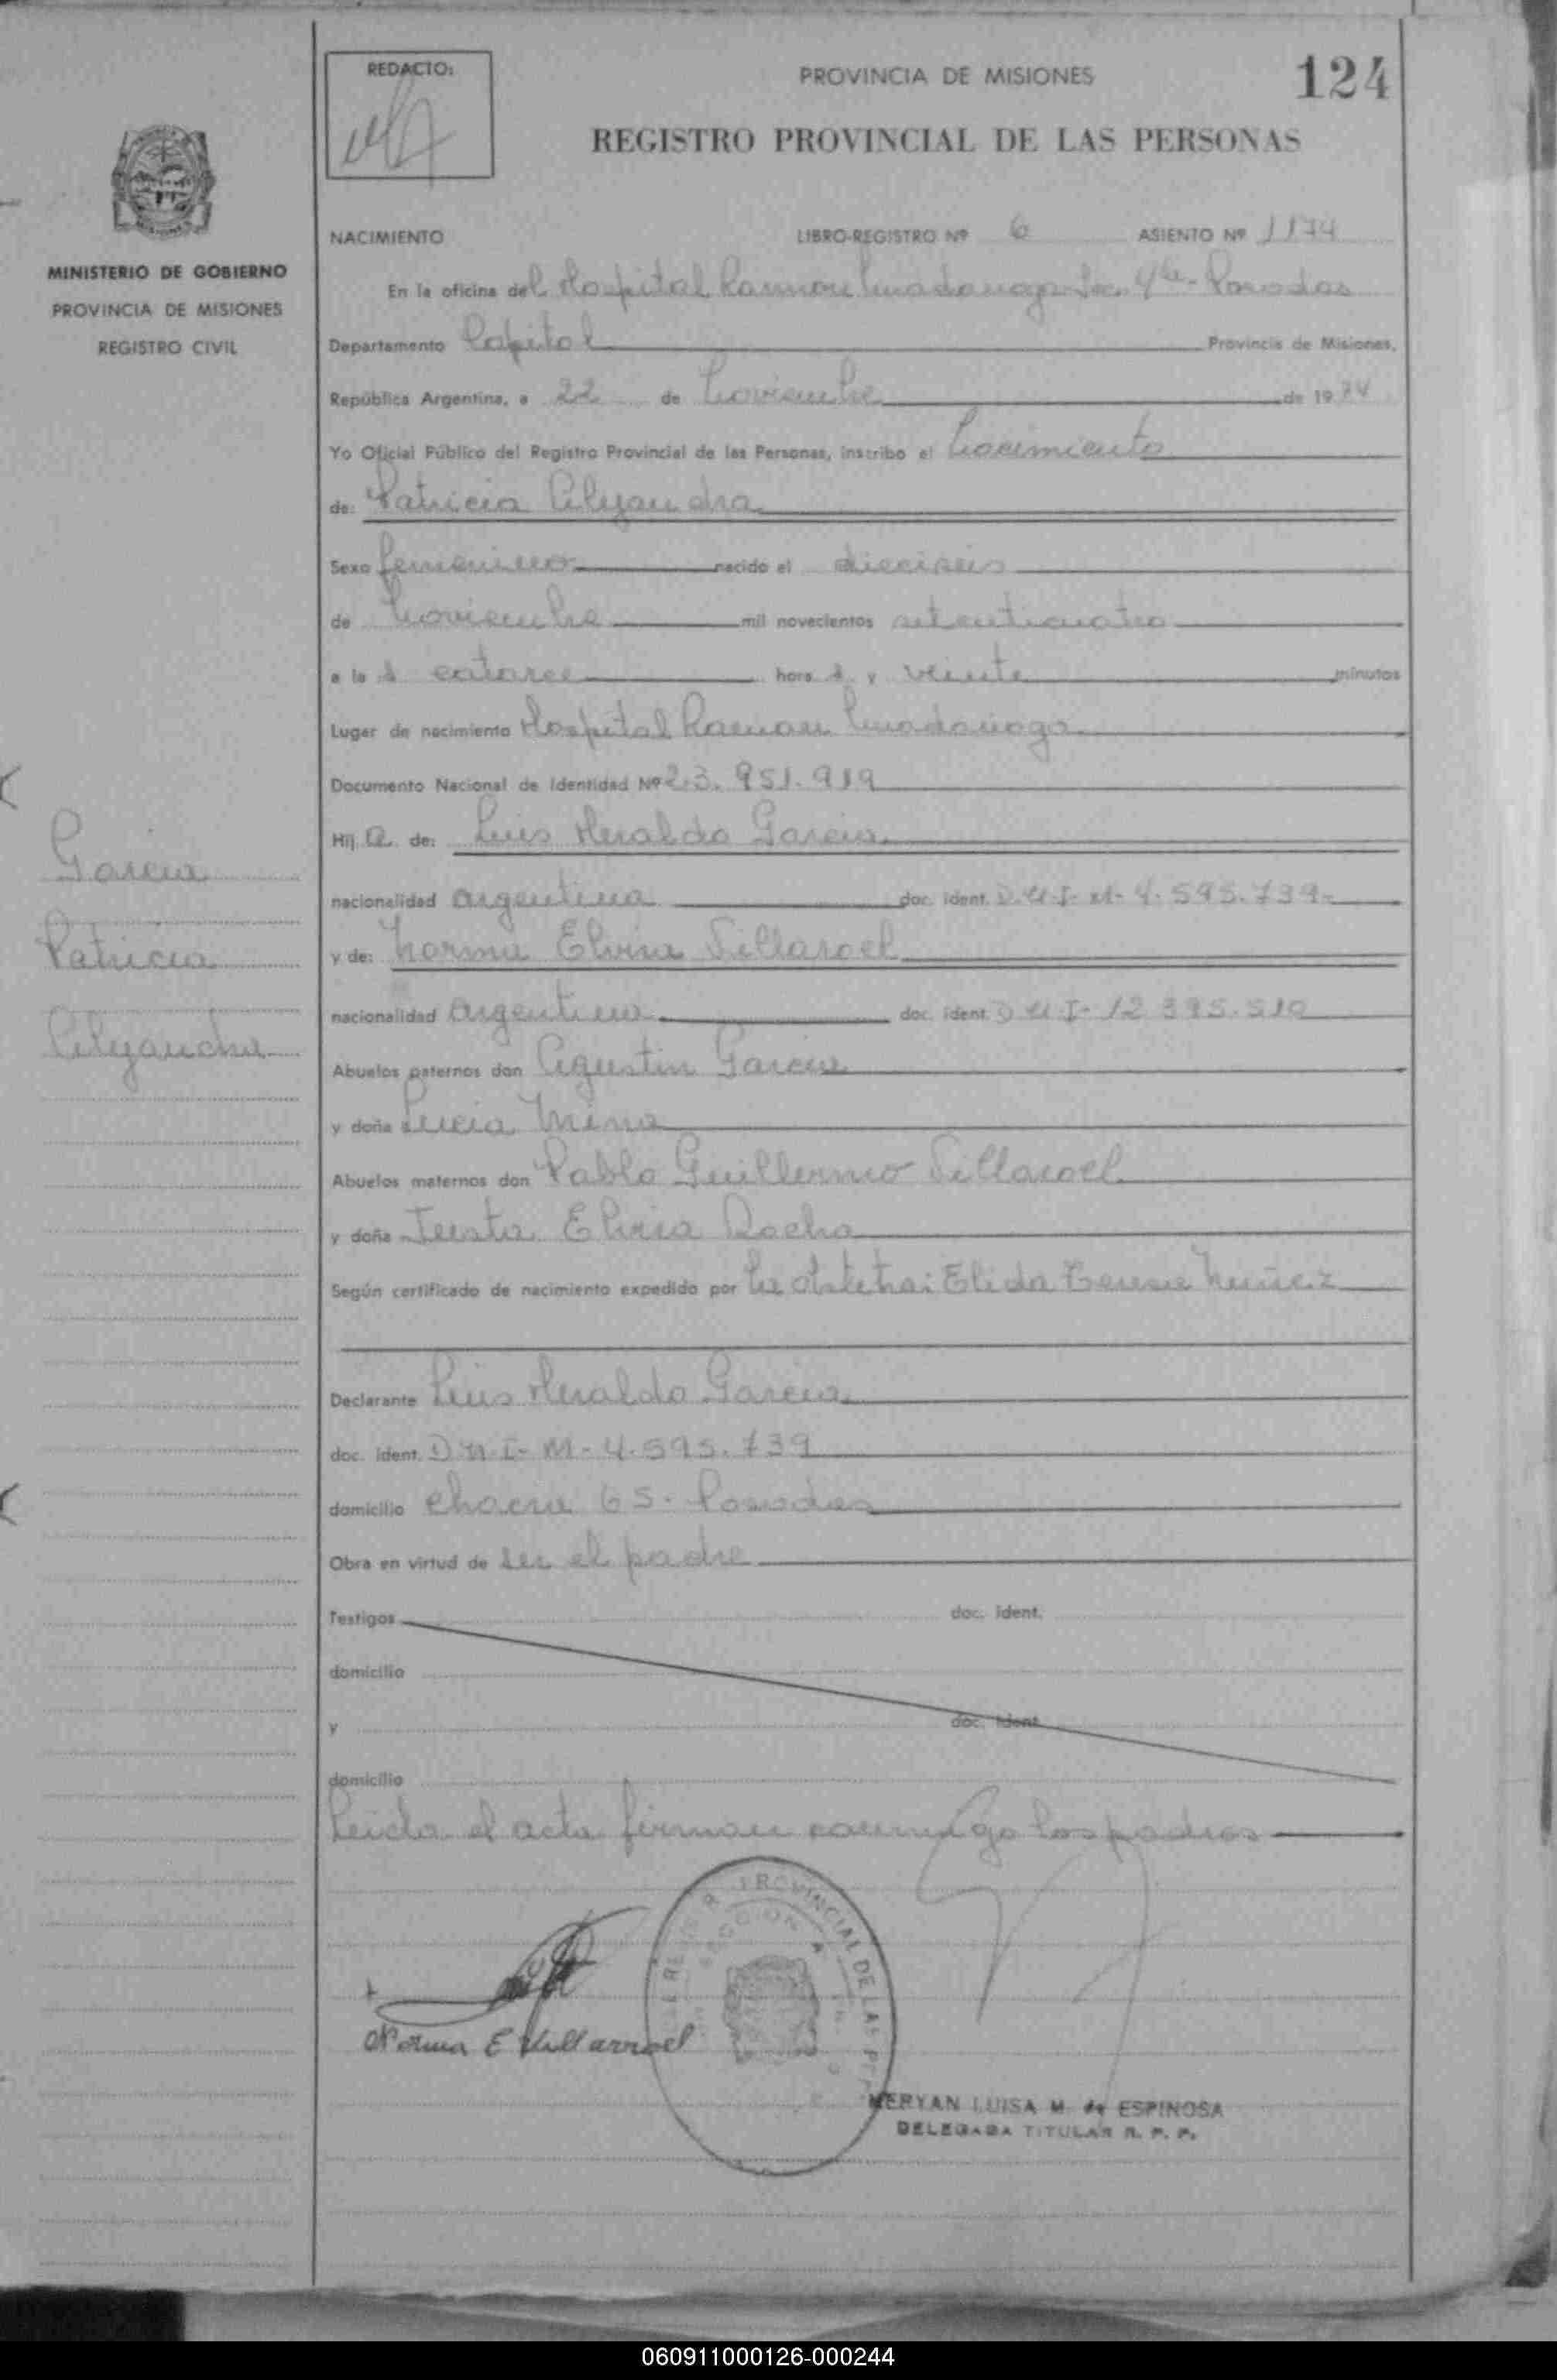 REDACTO:
PROVINCIA DE MISIONES
124
REGISTRO PROVINCIAL DE LAS PERSONAS
MINISTERIO DE GOBIERNO
PROVINCIA DE MISIONES
REGISTRO CIVIL
NACIMIENTO LIBRO-REGISTRO Nº 6 ASIENTO Nº 1174
En la oficina del Hospital Ramon Madariaga Sec. 4ta - Posadas
Departamento Capital Provincia de Misiones,
República Argentina, a 22 de Noviembre de 1974
Yo Oficial Público del Registro Provincial de las Personas, inscribo el Nacimiento
de: Patricia Alejandra
Sexo femenino nacido el dieciseis
de Noviembre mil novecientos setenticuatro
a la s catorce hora s y veinte minutos
Lugar de nacimiento Hospital Ramon Madariaga
Documento Nacional de Identidad Nº 23.951.919
Hij a de: Luis Heraldo Garcia
nacionalidad argentina doc. ident. D.N.I- M- 4.595.739-
y de: Norma Elvira Villaroel
nacionalidad argentina doc. ident. D.N.I- 12.395.510
Abuelos paternos don Agustin Garcia
y doña Lucia Mino
Abuelos maternos don Pablo Guillermo Villaroel
y doña Justa Elvira Rocha
Según certificado de nacimiento expedido por la obstetra: Elida Teresa Nuñez
Declarante Luis Heraldo Garcia
doc. ident. D.N.I- M- 4.595.739
domicilio chacra 65- Posadas
Obra en virtud de ser el padre
Testigos doc. ident.
domicilio
y doc. ident.
domicilio
Leida el acta firman conmigo los padres
Garcia
Patricia
Alejandra
Norma E Villarroel
PROVINCIAL DE LAS
SECCION
NERYAN LUISA M. de ESPINOSA
DELEGADA TITULAR R. P. P.
060911000126-000244